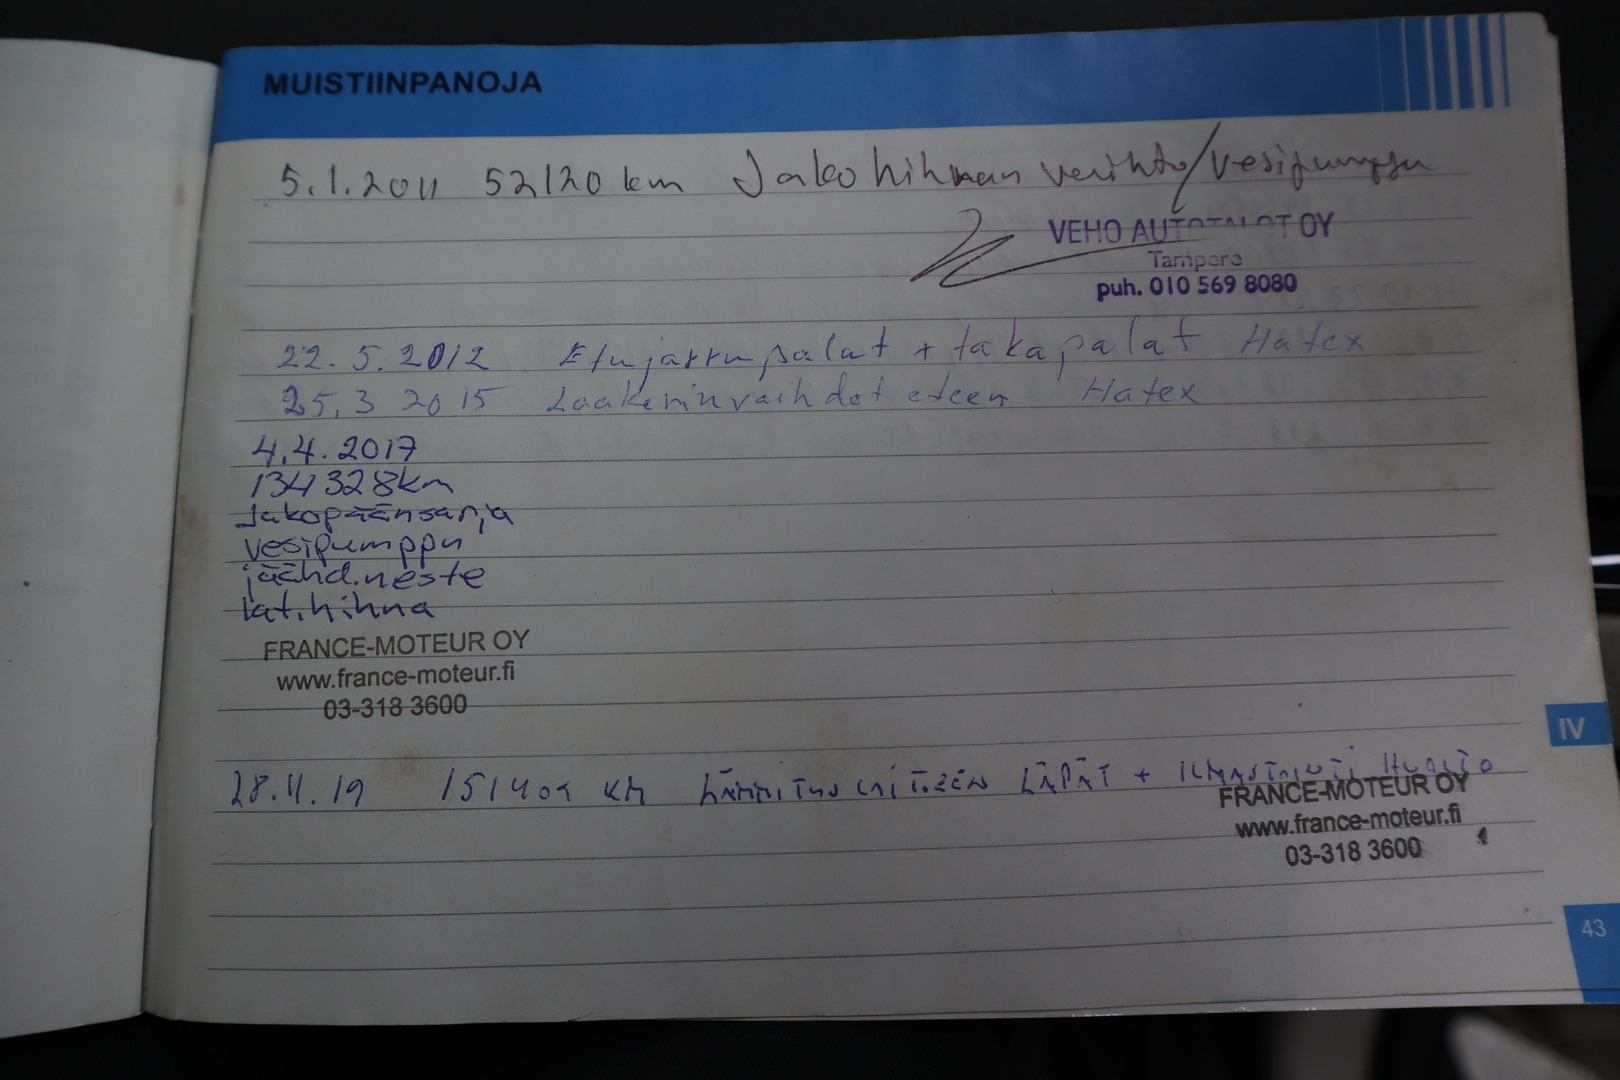 MUISTIINPANOJA
5.1.2011 52120 km Jakohihnan vaihto/vesipumppu
VEHO AUTOTALOT OY
Tampere
puh. 010 569 8080
22.5.2012 Etujarrupalat + takapalat Hatex
25.3 2015 Laakerinvaihdot eteen Hatex
4.4.2017
134328km
Jakopäänsarja
vesipumppu
jäähd.neste
lat.hihna
FRANCE-MOTEUR OY
www.france-moteur.fi
03-318 3600
IV
28.11.19 KM LÄMMITYS LAITTEEN LÄPÄT + ILMASTOINTI HUOLTO
FRANCE-MOTEUR OY
www.france-moteur.fi
03-318 3600
43